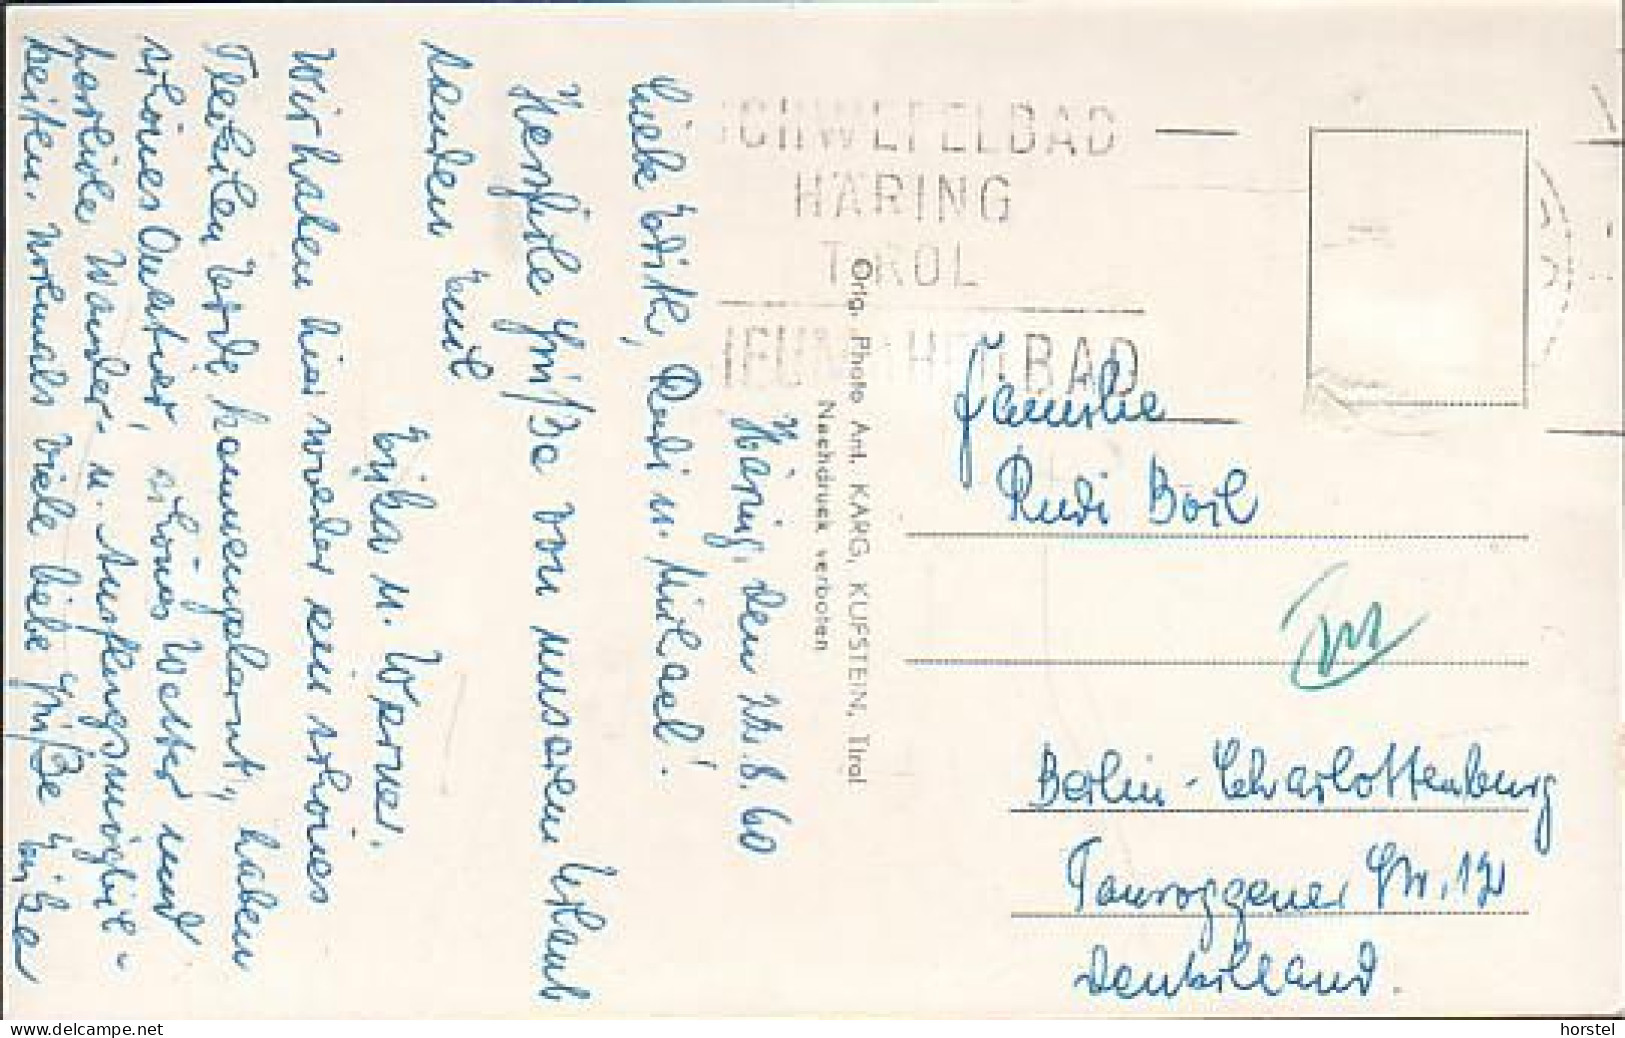 Häring, den 22.8.60
Liebe Edith, Rudi u. Michael!
Herzliche Grüße von unserem Urlaub
senden Euch
Erika u. Werner.
Wir haben hier wieder ein schönes
Fleckchen Erde kennengelernt, haben
schönes Quartier, schönes Wetter und
herrliche Wander- u. Ausflugsmöglich-
keiten. Nochmals viele liebe Grüße
Orig. Photo Ant. KARG, KUFSTEIN, Tirol
Nachdruck verboten
SCHWEFELBAD
HÄRING
TIROL
BAD
Familie
Rudi
Berlin-Charlottenburg
Tauroggener Str. 12
Deutschland.
https://www.delcampe.net
horstel